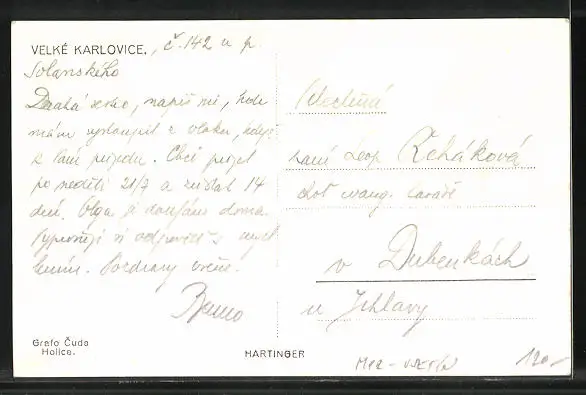 VELKÉ KARLOVICE, č. 142 u p.
Solanského
Drahá sestro, napiš mi, kde
mám vystoupit z vlaku, když
k Vám pojedu. Chci přijet
po neděli 21/7 a zůstat 14
dní. Olga a doma.
mi odpověď s
Pozdravy vřelé.
Bruno
Ctěná
paní Leop. Řeháková
choť evang. faráře
v Dubenkách
u Jihlavy
Grafo Čuda
Holice.
HARTINGER
120,-